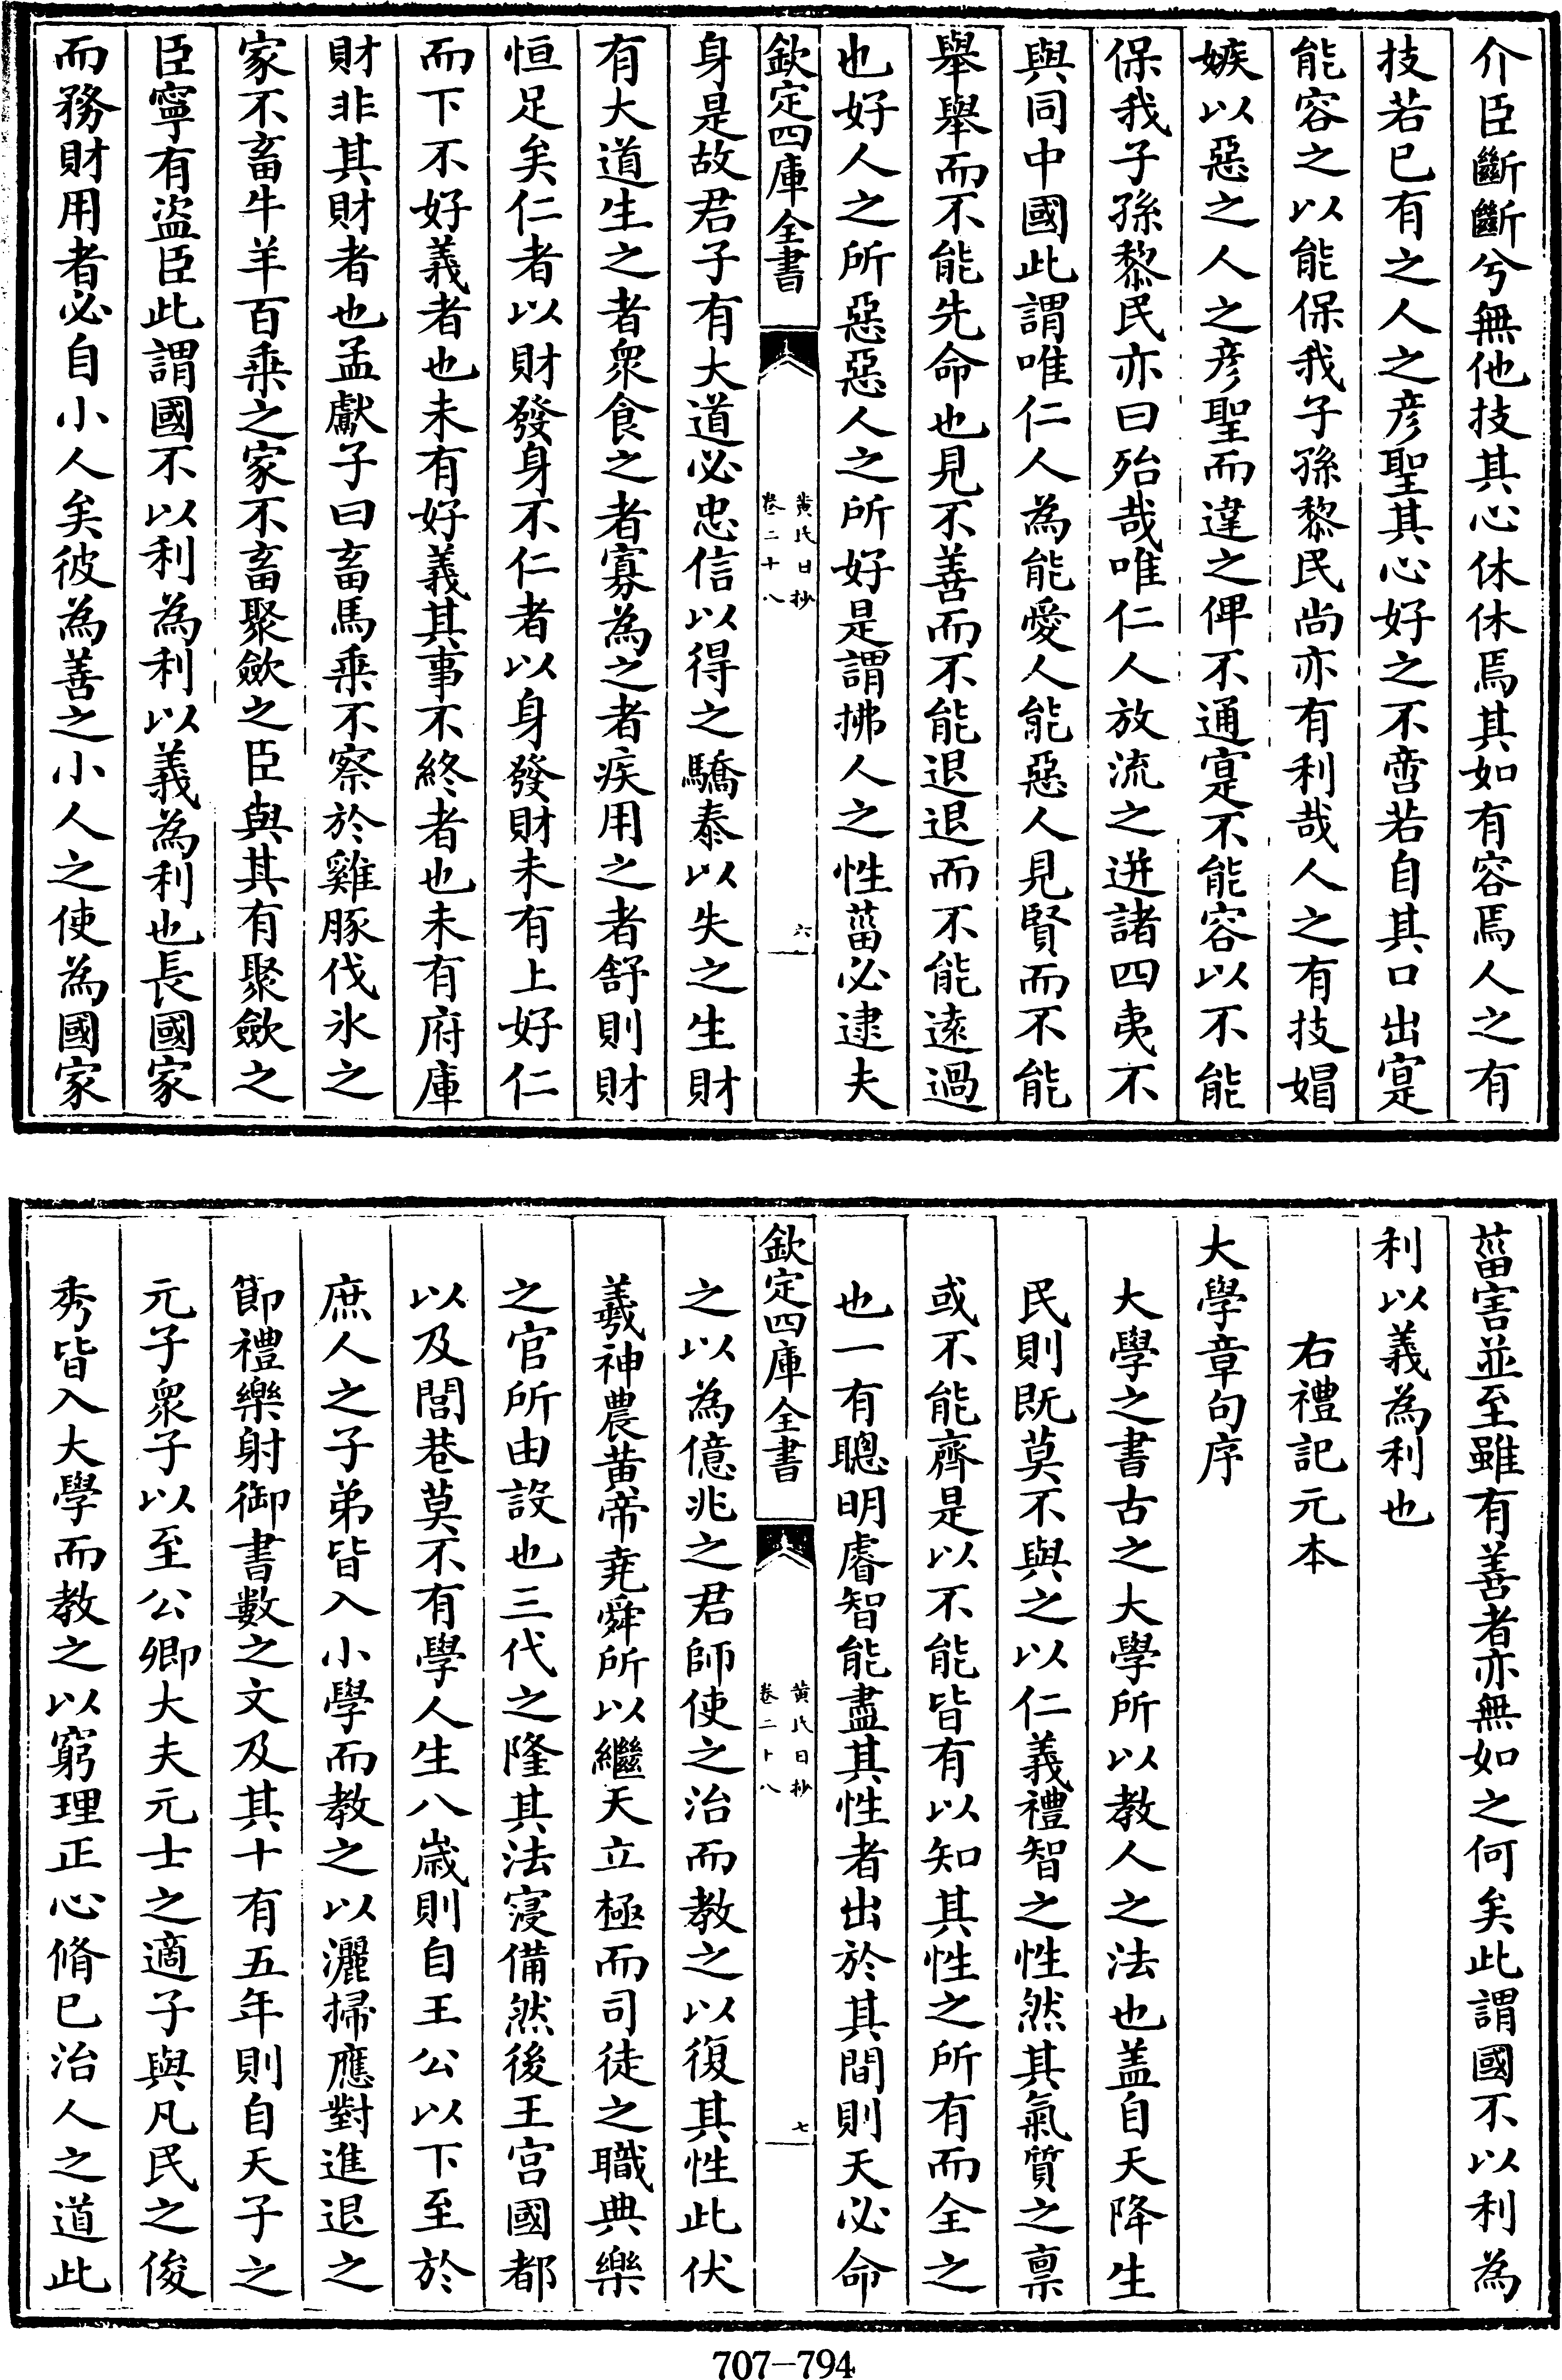 介臣斷斷兮無他技其心休休焉其如有容焉人之有
技若已有之人之彦聖其心好之不啻若自其口出寔
能容之以能保我子孫黎民尚亦有利哉人之有技媢
嫉以惡之人之彦聖而違之俾不通寔不能容以不能
保我子孫黎民亦曰殆哉唯仁人放流之迸諸四夷不
與同中國此謂唯仁人為能愛人能惡人見賢而不能
舉舉而不能先命也見不善而不能退退而不能逺過
也好人之所惡惡人之所好是謂拂人之性菑必逮夫
欽定四庫全書
黄氏日抄
卷二十八
六
身是故君子有大道必忠信以得之驕泰以失之生財
有大道生之者衆食之者寡為之者疾用之者舒則財
恒足矣仁者以財發身不仁者以身發財未有上好仁
而下不好義者也未有好義其事不終者也未有府庫
財非其財者也孟獻子曰畜馬乗不察於雞豚伐氷之
家不畜牛羊百乗之家不畜聚斂之臣與其有聚斂之
臣寧有盗臣此謂國不以利為利以義為利也長國家
而務財用者必自小人矣彼為善之小人之使為國家
菑害並至雖有善者亦無如之何矣此謂國不以利為
利以義為利也
右禮記元本
大學章句序
大學之書古之大學所以教人之法也盖自天降生
民則既莫不與之以仁義禮智之性然其氣質之禀
或不能齊是以不能皆有以知其性之所有而全之
也一有聰明睿智能盡其性者出於其間則天必命
欽定四庫全書
黄氏日抄
卷二十八
七
之以為億兆之君師使之治而教之以復其性此伏
羲神農黄帝堯舜所以繼天立極而司徒之職典樂
之官所由設也三代之隆其法寖備然後王宫國都
以及閭巷莫不有學人生八歳則自王公以下至於
庶人之子弟皆入小學而教之以灑掃應對進退之
節禮樂射御書數之文及其十有五年則自天子之
元子衆子以至公卿大夫元士之適子與凡民之俊
秀皆入大學而教之以窮理正心脩已治人之道此
707-794